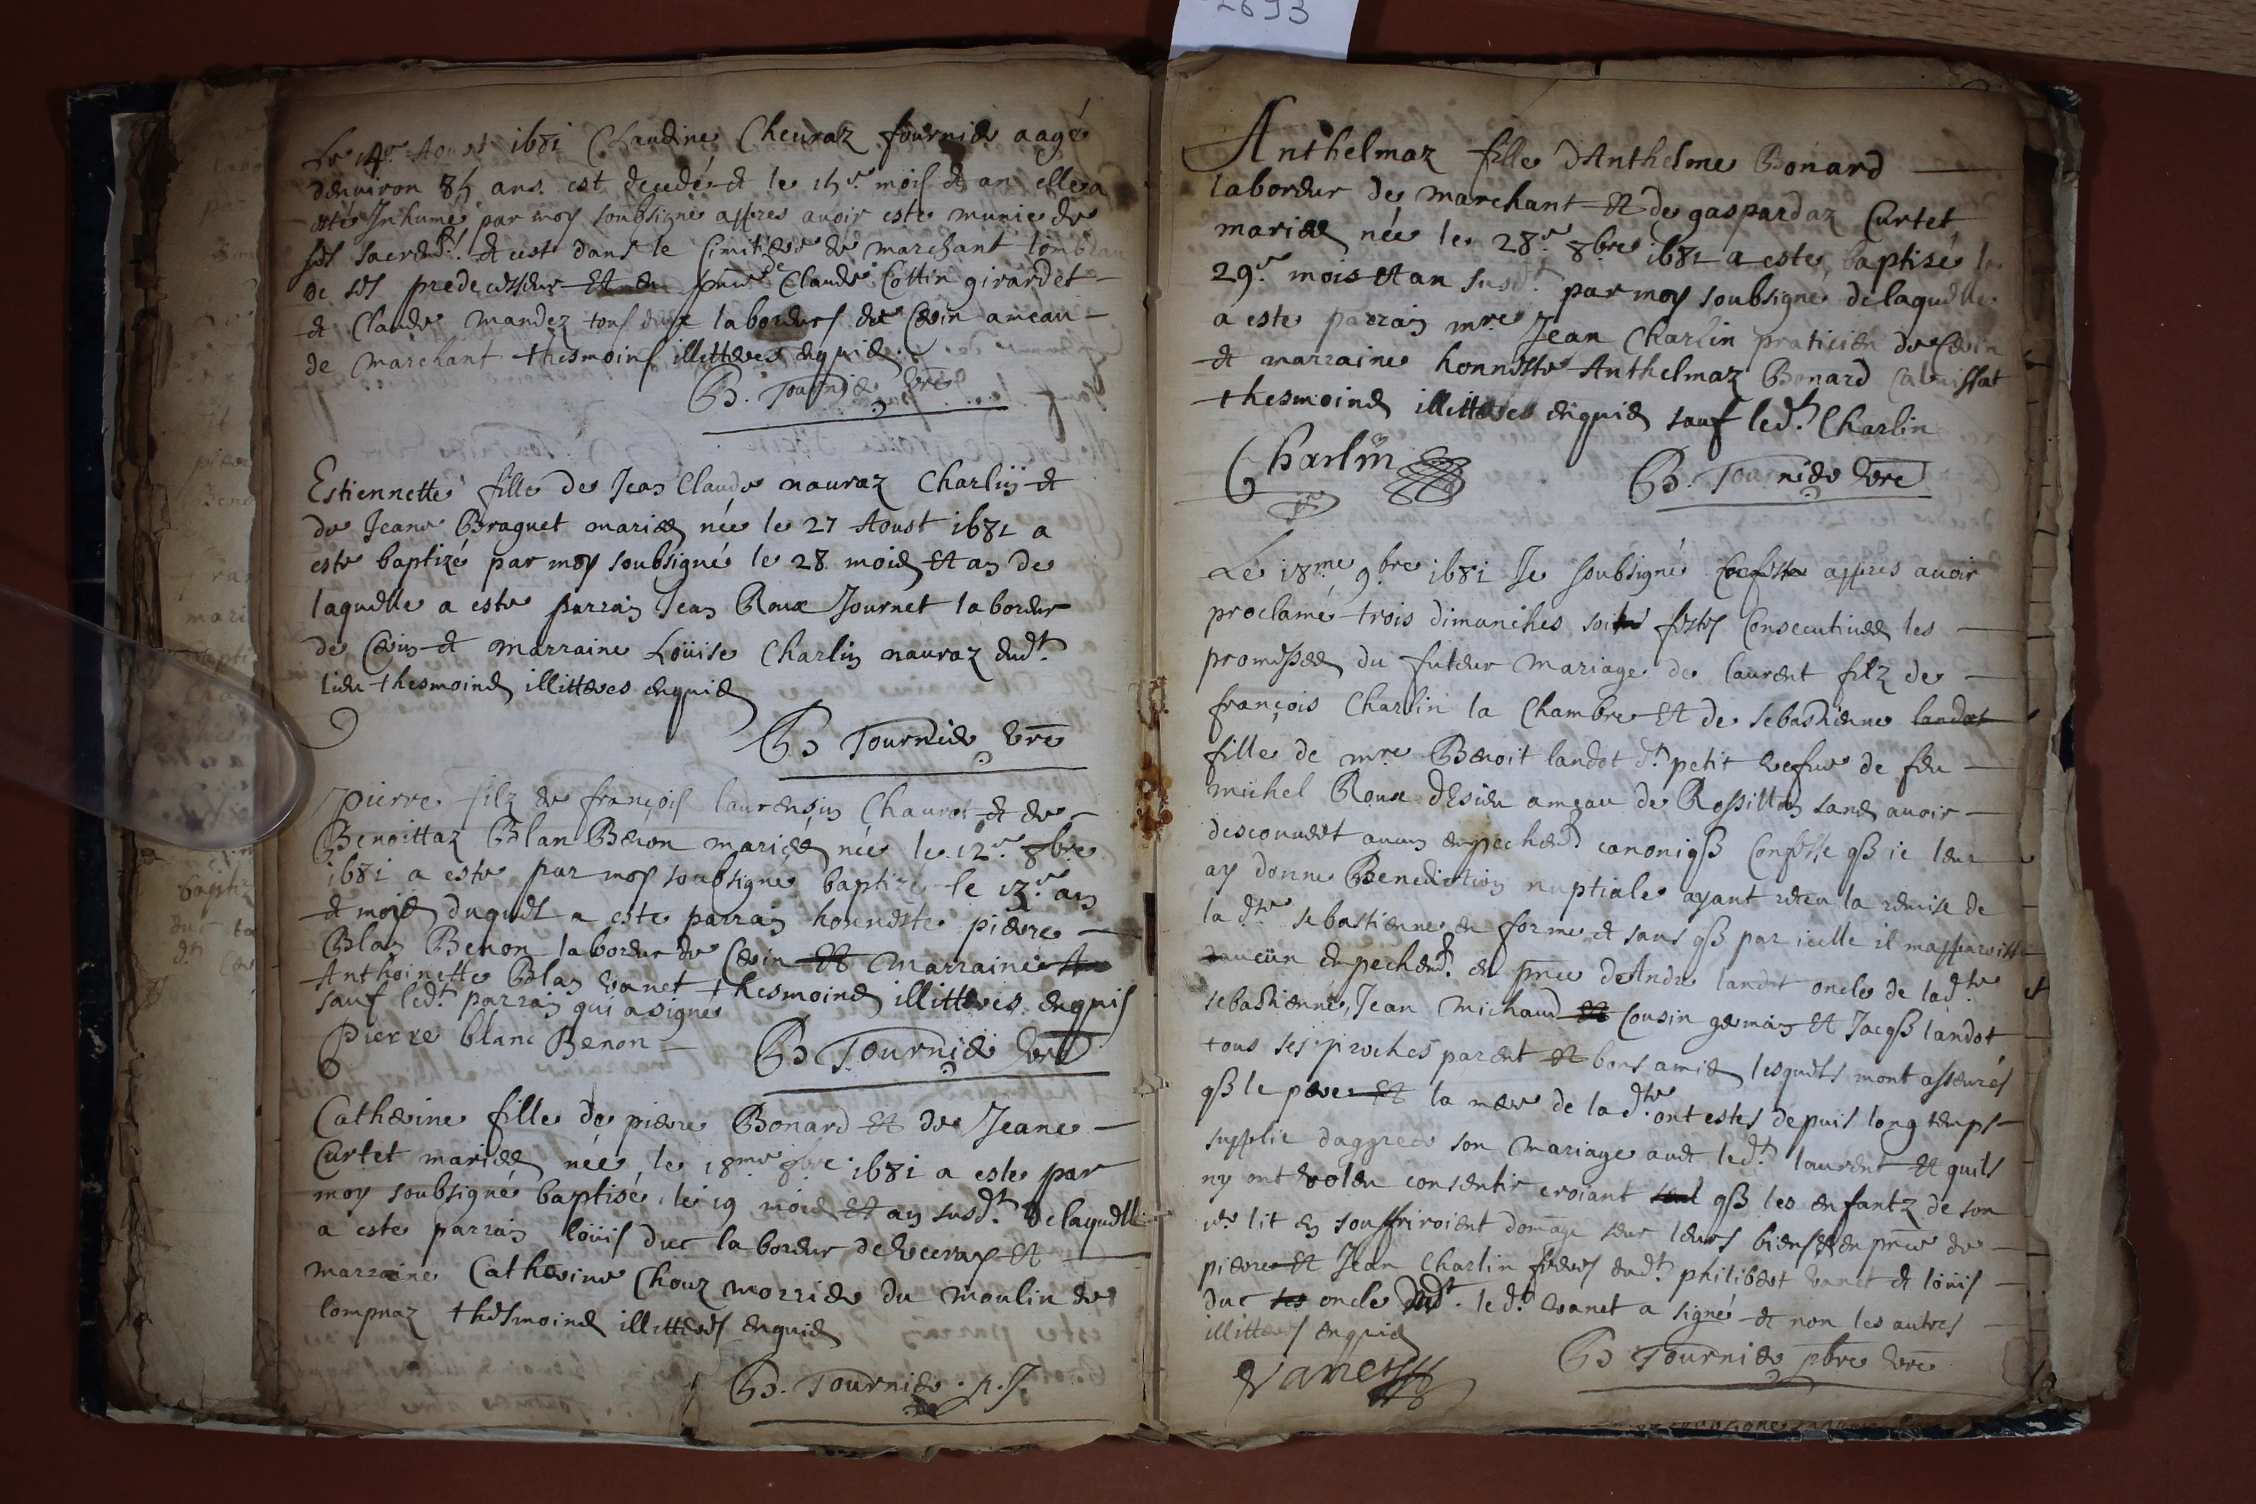 2693
Le 14e Aoust 1681 Claudine Cheuraz fournier aagé
denuiron 85 ans est decedé et le 15e mois et an elle a
esté Inhumé par moy soubsigné appres auoir este munie de
ses sacremts et cest dans le Cimitiere de marchant tombeau
de ses predecesseur Et en pnce de Claude Cottin girardet
et Claude mandez tous deux laboreurs de Cevin ameau
de marchant thesmoins illitteres enquis
B. Tournier vre
Estiennette fille de Jean Claude nauraz Charlin et
de Jeane Braguet mariés née le 27 Aoust 1681 a
este baptizé par moy soubsigné le 28 mois et an de
laquelle a este parrain Jean Roux Journet laboreur
de Cevin et marraine Loüise Charlin nauraz dudt
lieu thesmoins illitteres enquis
B Tournier vre
Pierre filz de françois laurensin Chaurot et de
Benoittaz Blan Benon mariés née le 12e 8bre
1681 a este par moy soubsigné baptizé le 13e an
et mois duquel a este parrain honneste pierre
Blan Benon laboreur de Cevin et marraine An
Anthoinette Blan vanet thesmoins illitteres enquis
sauf ledt parrain qui a signé
Pierre blanc Benon
B Tournier vre
Catherine fille de pierre Bonard et de Jeane
Curtet mariés née le 18me 8bre 1681 a este par
moy soubsigné baptisé le 19 mois et an susdt de laquelle
a este parrain loüis duc laboreur de et
marraine Catherine Chouz morrier du moulin de
lompnaz thesmoins illitteres enquis
B. Tournier
Anthelmaz fille d'Anthelme Bonard
laboreur de marchant et de gaspardaz Curtet
mariés née le 28e 8bre 1681 a este baptisé le
29e mois et an susdt par moy soubsigné de laquelle
a este parrain mre Jean Charlin praticien de Cevin
et marraine honneste Anthelmaz Bonard
thesmoins illitteres enquis sauf ledt Charlin
Charlin
B. Tournier vre
Le 18me 9bre 1681 Je soubsigné appres auoir
proclamé trois dimanches soit festes Consecutiues les
promesses du futeur mariage de laurent filz de
françois Charlin la Chambre et de sebastienne landot
fille de mre Benoit landot dt petit vefue de feu
michel Roux d'Esieu ameau de Rossillon sans auoir
descouuert aucun empechemt canoniqs Confesse qs ie leur
ay donne Benediction nuptiale ayant receu la remise de
la dte sebastienne en forme et sans qs par icelle il mapparoisse
daucün empechemt en pnce de Andre landot oncle de ladte
sebastienne, Jean michaud et Cousin germain et Jacqs landot
tous ses proches parent et bons amis lesquels mont asseurés
qs le pere et la mere de la dte ont estes depuis long temps
supplie daggreer son mariage auec ledt laurent et quils
ny ont voleu consentir croiant seul qs les enfantz de son
1er lit en souffriroient domage seur leurs biens et en pnce de
pierre et Jean Charlin freres dudt philibert vanet et loüis
duc ses oncle dudt. ledt vanet a signé et non les autres
illitteres enquis
Vanet
B Tournier pbre vre